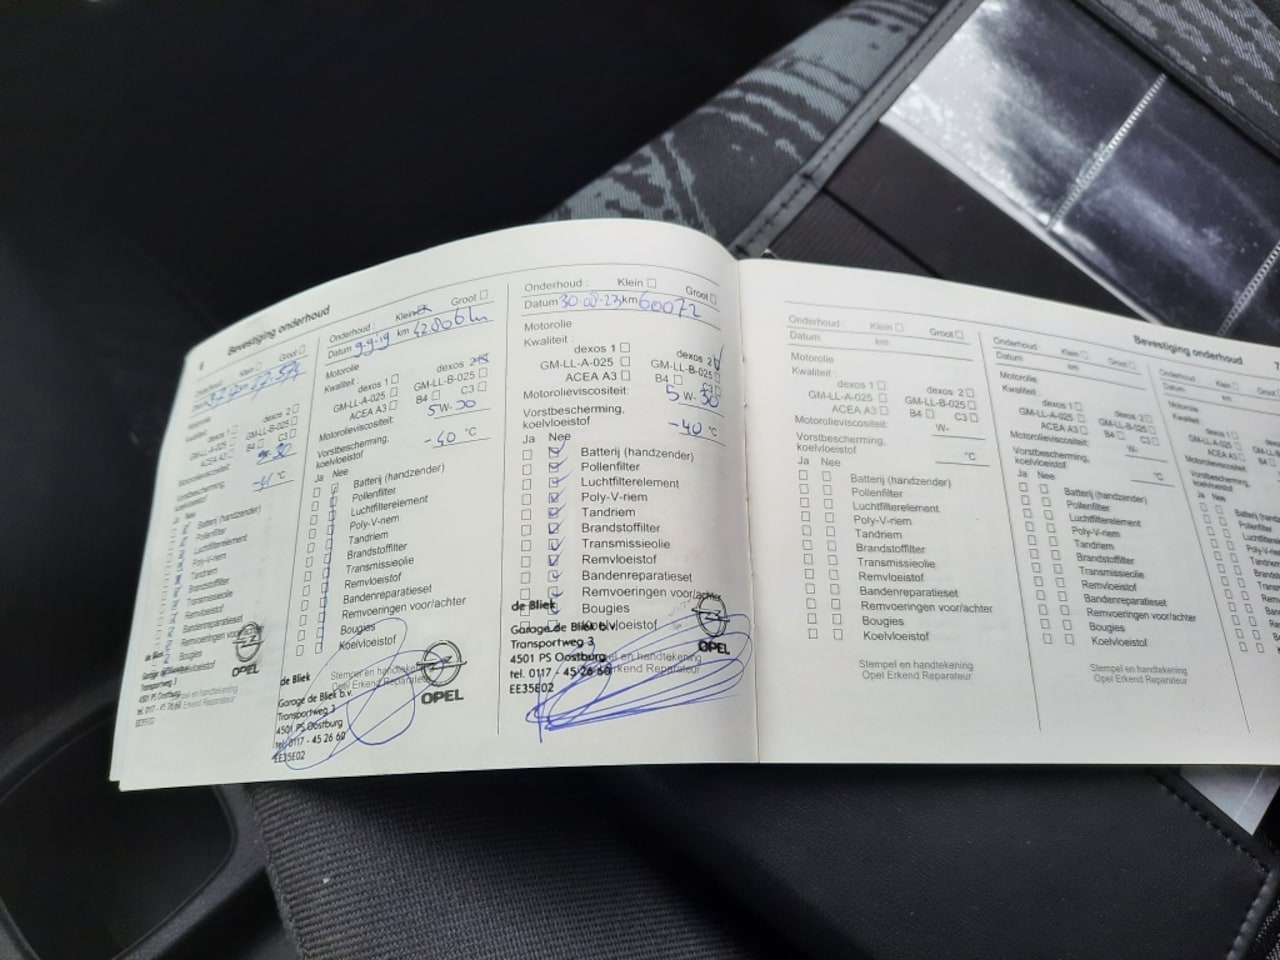 6
Bevestiging onderhoud
Onderhoud : Klein Groot
Datum km
Motorolie
Kwaliteit :
dexos 1 dexos 2
GM-LL-A-025 GM-LL-B-025
ACEA A3 B4 C3
Motorolieviscositeit:
Vorstbescherming,
koelvloeistof °C
Ja Nee
Batterij (handzender)
Pollenfilter
Luchtfilterelement
Poly-V-riem
Tandriem
Brandstoffilter
Transmissieolie
Remvloeistof
Bandenreparatieset
Remvoeringen voor/achter
Bougies
Koelvloeistof
de Bliek
Garage de Bliek b.v.
Transportweg 3
4501 PS Oostburg
tel. 0117 - 45 26 60
EE35E02
OPEL
Onderhoud : Klein Groot
Datum 9-9-19 km 42806 km
Motorolie
Kwaliteit :
dexos 1 dexos 2
GM-LL-A-025 GM-LL-B-025
ACEA A3 B4 C3
Motorolieviscositeit: 5 W- 30
Vorstbescherming,
koelvloeistof -40 °C
Ja Nee
Batterij (handzender)
Pollenfilter
Luchtfilterelement
Poly-V-riem
Tandriem
Brandstoffilter
Transmissieolie
Remvloeistof
Bandenreparatieset
Remvoeringen voor/achter
Bougies
Koelvloeistof
Stempel en handtekening
Opel Erkend Reparateur
de Bliek
Garage de Bliek b.v.
Transportweg 3
4501 PS Oostburg
tel. 0117 - 45 26 60
EE35E02
OPEL
Onderhoud : Klein Groot
Datum 30-08-23 km 60072
Motorolie
Kwaliteit :
dexos 1 dexos 2
GM-LL-A-025 GM-LL-B-025
ACEA A3 B4 C3
Motorolieviscositeit: 5 W- 30
Vorstbescherming,
koelvloeistof -40 °C
Ja Nee
Batterij (handzender)
Pollenfilter
Luchtfilterelement
Poly-V-riem
Tandriem
Brandstoffilter
Transmissieolie
Remvloeistof
Bandenreparatieset
Remvoeringen voor/achter
Bougies
Koelvloeistof
Stempel en handtekening
Opel Erkend Reparateur
de Bliek
Garage de Bliek b.v.
Transportweg 3
4501 PS Oostburg
tel. 0117 - 45 26 60
EE35E02
OPEL
Bevestiging onderhoud
7
Onderhoud : Klein Groot
Datum km
Motorolie
Kwaliteit :
dexos 1 dexos 2
GM-LL-A-025 GM-LL-B-025
ACEA A3 B4 C3
Motorolieviscositeit: W-
Vorstbescherming,
koelvloeistof °C
Ja Nee
Batterij (handzender)
Pollenfilter
Luchtfilterelement
Poly-V-riem
Tandriem
Brandstoffilter
Transmissieolie
Remvloeistof
Bandenreparatieset
Remvoeringen voor/achter
Bougies
Koelvloeistof
Stempel en handtekening
Opel Erkend Reparateur
Onderhoud : Klein Groot
Datum km
Motorolie
Kwaliteit :
dexos 1 dexos 2
GM-LL-A-025 GM-LL-B-025
ACEA A3 B4 C3
Motorolieviscositeit: W-
Vorstbescherming,
koelvloeistof °C
Ja Nee
Batterij (handzender)
Pollenfilter
Luchtfilterelement
Poly-V-riem
Tandriem
Brandstoffilter
Transmissieolie
Remvloeistof
Bandenreparatieset
Remvoeringen voor/achter
Bougies
Koelvloeistof
Stempel en handtekening
Opel Erkend Reparateur
Onderhoud : Klein
Datum km
Motorolie
Kwaliteit :
dexos 1
GM-LL-A-025
ACEA A3
Motorolieviscositeit:
Vorstbescherming,
koelvloeistof
Ja Nee